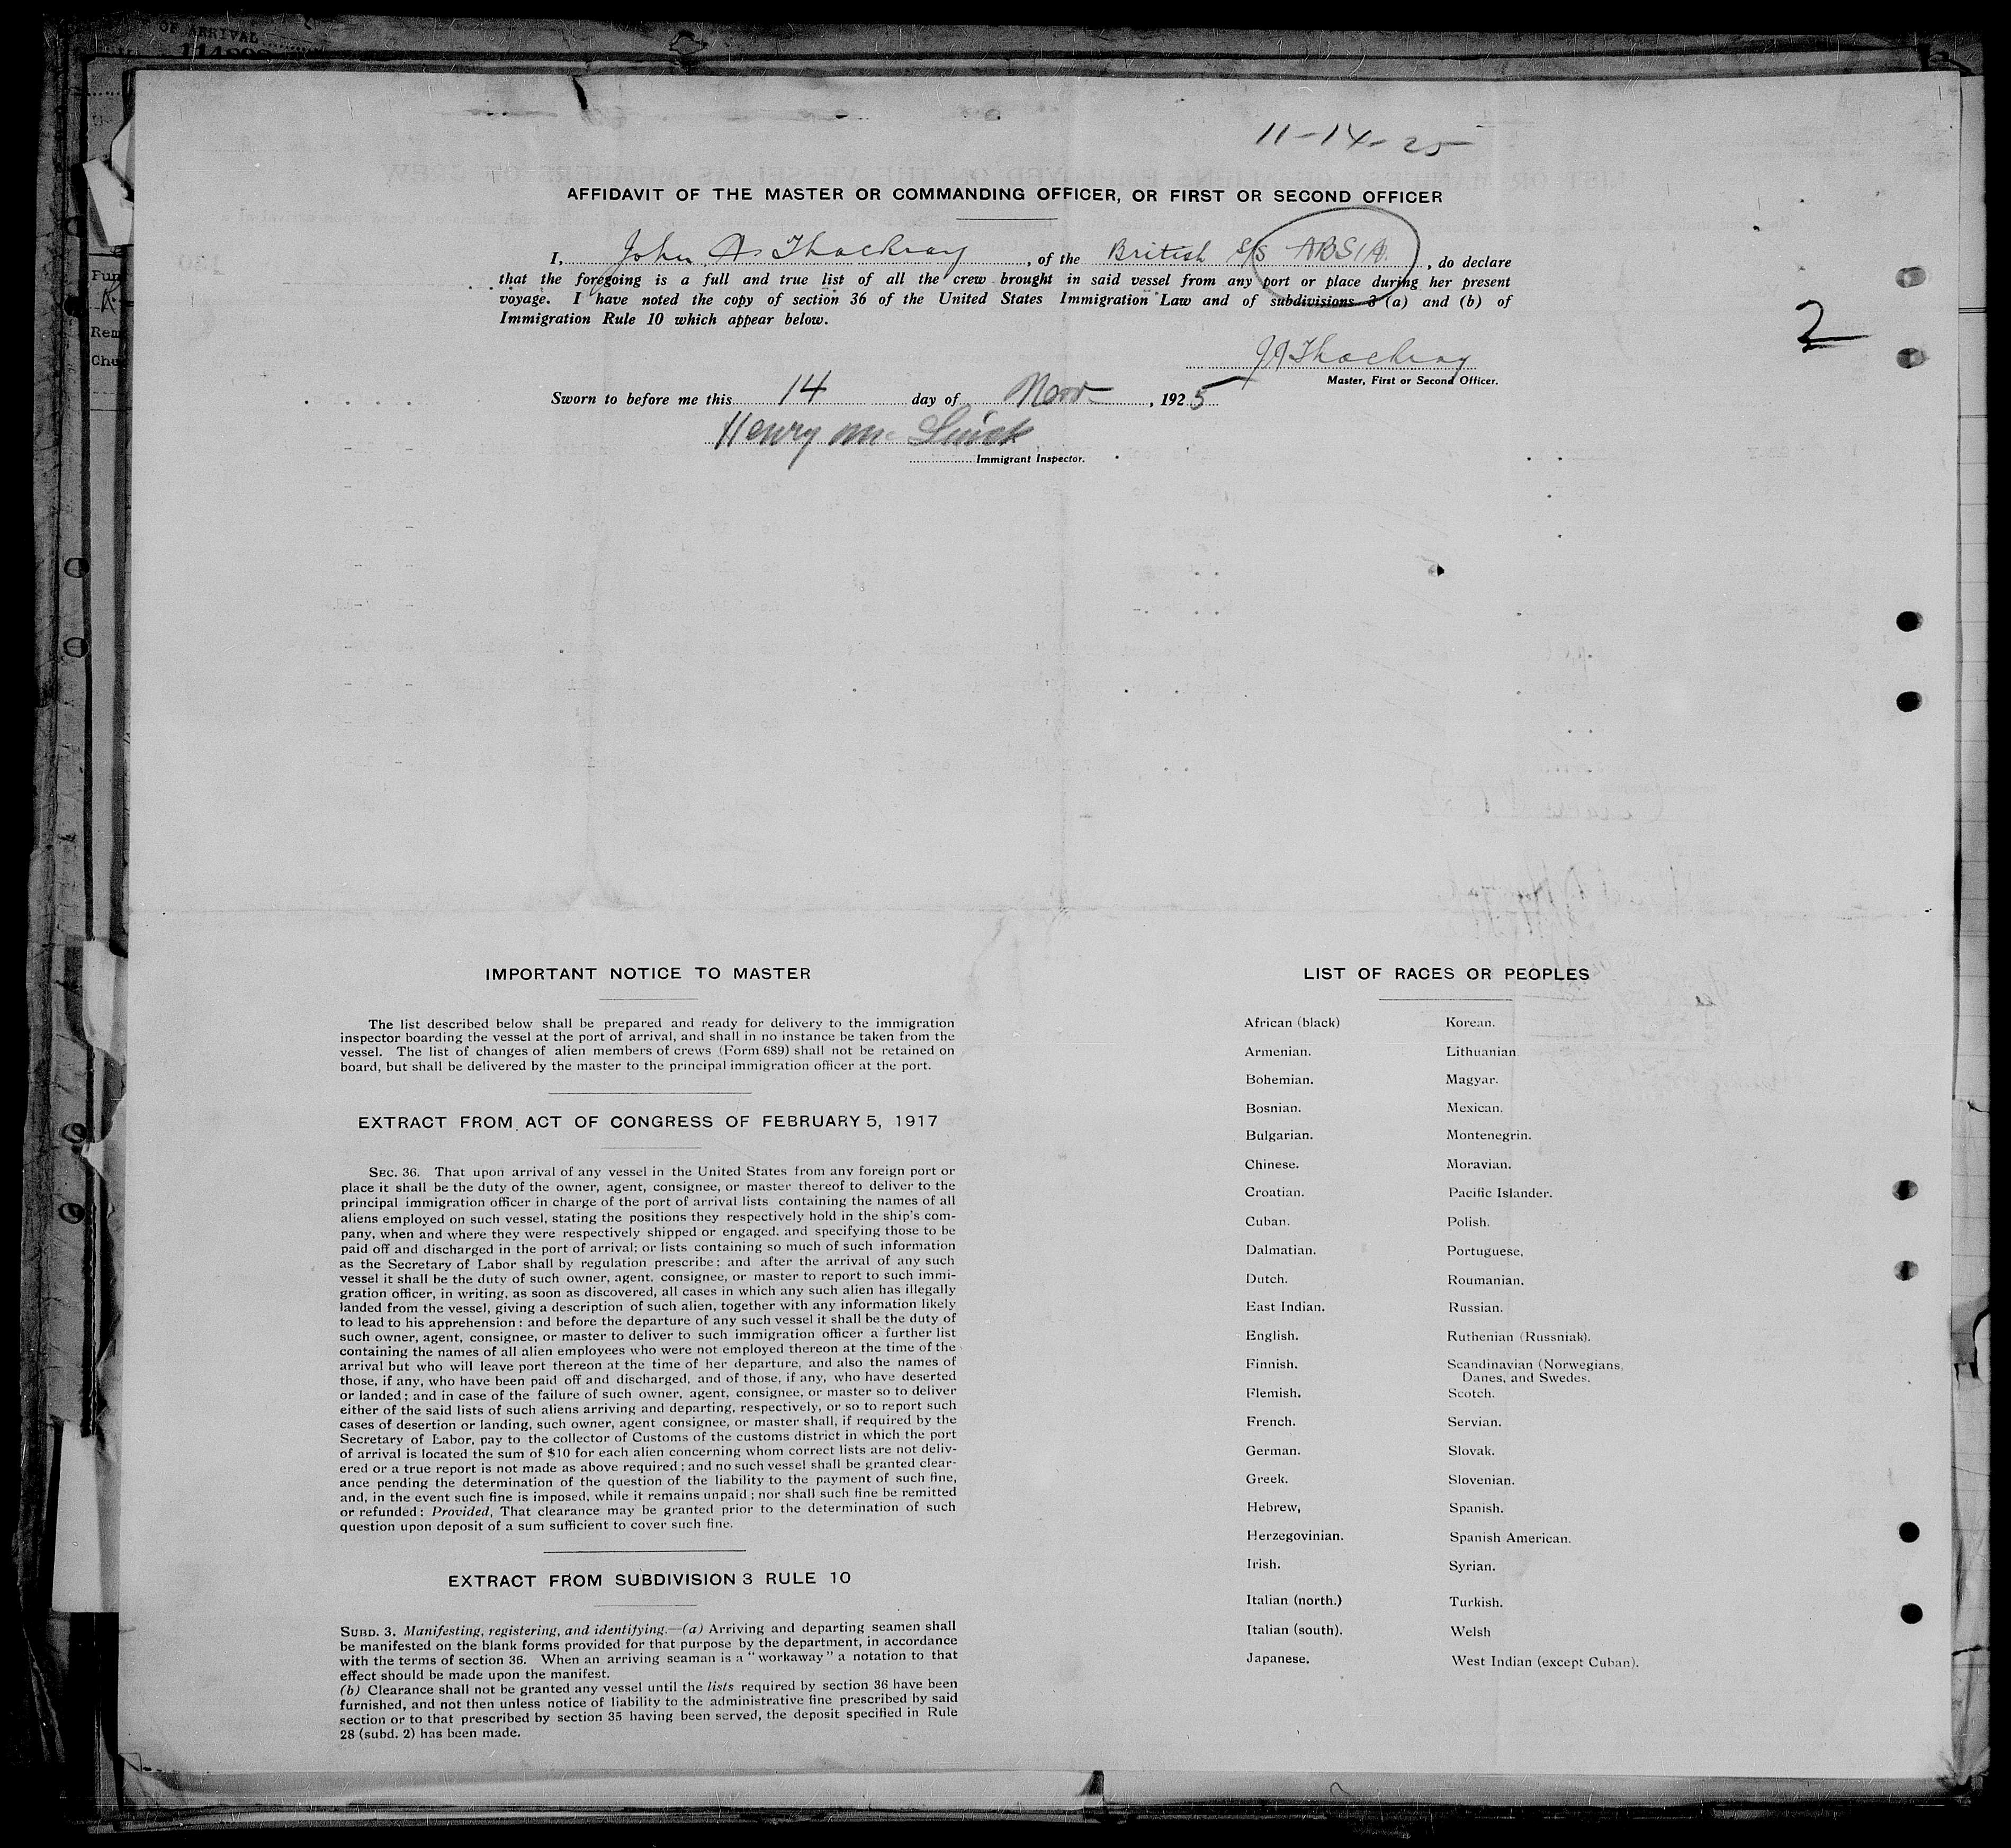 OF ARRIVAL
11-14-25
AFFIDAVIT OF THE MASTER OR COMMANDING OFFICER, OR FIRST OR SECOND OFFICER
I, John A Thackray, of the British S/S ABSIA, do declare
that the foregoing is a full and true list of all the crew brought in said vessel from any port or place during her present
voyage. I have noted the copy of section 36 of the United States Immigration Law and of subdivisions 3 (a) and (b) of
Immigration Rule 10 which appear below.
2
JAThackray
Master, First or Second Officer.
Sworn to before me this 14 day of Nov, 1925
Henry
Immigrant Inspector.
Rem
IMPORTANT NOTICE TO MASTER
The list described below shall be prepared and ready for delivery to the immigration
inspector boarding the vessel at the port of arrival, and shall in no instance be taken from the
vessel. The list of changes of alien members of crews (Form 689) shall not be retained on
board, but shall be delivered by the master to the principal immigration officer at the port.
EXTRACT FROM ACT OF CONGRESS OF FEBRUARY 5, 1917
SEC. 36. That upon arrival of any vessel in the United States from any foreign port or
place it shall be the duty of the owner, agent, consignee, or master thereof to deliver to the
principal immigration officer in charge of the port of arrival lists containing the names of all
aliens employed on such vessel, stating the positions they respectively hold in the ship's com-
pany, when and where they were respectively shipped or engaged, and specifying those to be
paid off and discharged in the port of arrival; or lists containing so much of such information
as the Secretary of Labor shall by regulation prescribe; and after the arrival of any such
vessel it shall be the duty of such owner, agent, consignee, or master to report to such immi-
gration officer, in writing, as soon as discovered, all cases in which any such alien has illegally
landed from the vessel, giving a description of such alien, together with any information likely
to lead to his apprehension; and before the departure of any such vessel it shall be the duty of
such owner, agent, consignee, or master to deliver to such immigration officer a further list
containing the names of all alien employees who were not employed thereon at the time of the
arrival but who will leave port thereon at the time of her departure, and also the names of
those, if any, who have been paid off and discharged, and of those, if any, who have deserted
or landed; and in case of the failure of such owner, agent, consignee, or master so to deliver
either of the said lists of such aliens arriving and departing, respectively, or so to report such
cases of desertion or landing, such owner, agent consignee, or master shall, if required by the
Secretary of Labor, pay to the collector of Customs of the customs district in which the port
of arrival is located the sum of $10 for each alien concerning whom correct lists are not deliv-
ered or a true report is not made as above required; and no such vessel shall be granted clear-
ance pending the determination of the question of the liability to the payment of such fine,
and, in the event such fine is imposed, while it remains unpaid; nor shall such fine be remitted
or refunded: Provided, That clearance may be granted prior to the determination of such
question upon deposit of a sum sufficient to cover such fine.
EXTRACT FROM SUBDIVISION 3 RULE 10
SUBD. 3. Manifesting, registering, and identifying.—(a) Arriving and departing seamen shall
be manifested on the blank forms provided for that purpose by the department, in accordance
with the terms of section 36. When an arriving seaman is a "workaway" a notation to that
effect should be made upon the manifest.
(b) Clearance shall not be granted any vessel until the lists required by section 36 have been
furnished, and not then unless notice of liability to the administrative fine prescribed by said
section or to that prescribed by section 35 having been served, the deposit specified in Rule
28 (subd. 2) has been made.
LIST OF RACES OR PEOPLES
African (black)
Armenian.
Bohemian.
Bosnian.
Bulgarian.
Chinese.
Croatian.
Cuban.
Dalmatian.
Dutch.
East Indian.
English.
Finnish.
Flemish.
French.
German.
Greek.
Hebrew,
Herzegovinian.
Irish.
Italian (north.)
Italian (south).
Japanese.
Korean.
Lithuanian
Magyar.
Mexican.
Montenegrin.
Moravian.
Pacific Islander.
Polish.
Portuguese,
Roumanian.
Russian.
Ruthenian (Russniak).
Scandinavian (Norwegians,
Danes, and Swedes.
Scotch.
Servian.
Slovak.
Slovenian.
Spanish.
Spanish American.
Syrian.
Turkish.
Welsh
West Indian (except Cuban).